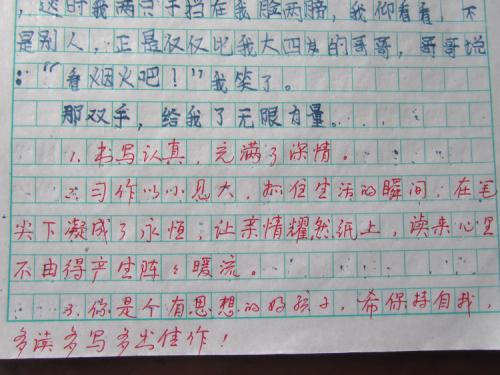 ，这时我两只手挡在我脸两膀，我仰看看，不
是别人，正是仅仅比我大四岁的哥哥，哥哥说
：“看烟火吧！”我笑了。
那双手，给我了无限力量。
1.书写认真，充满了深情。
2.习作以小见大，抓住生活的瞬间，在笔
尖下凝成了永恒，让亲情耀然纸上，读来心里
不由得产生阵阵暖流。
3.你是个有思想的好孩子，希保持自我，
多读多写多出佳作！